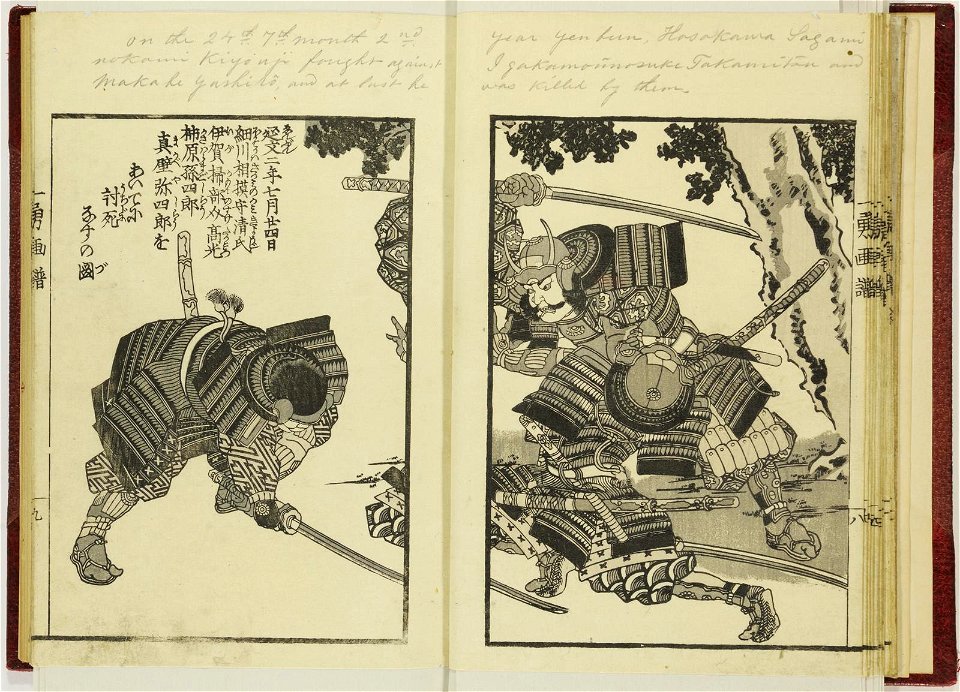 On the 24th 7th month 2nd year Yenbun, Hosokawa Sagami
nokami Kiyouji fought against Igakamounosuke Takamitsu and
Makabe Yashirō, and at last he was killed by them.
延文二年七月廿四日
細川相摸守清氏
伊賀掃部介高光
柿原孫四郎
真壁弥四郎を
あいてに
討死
なすの図
一勇画譜
八
一勇画譜
九